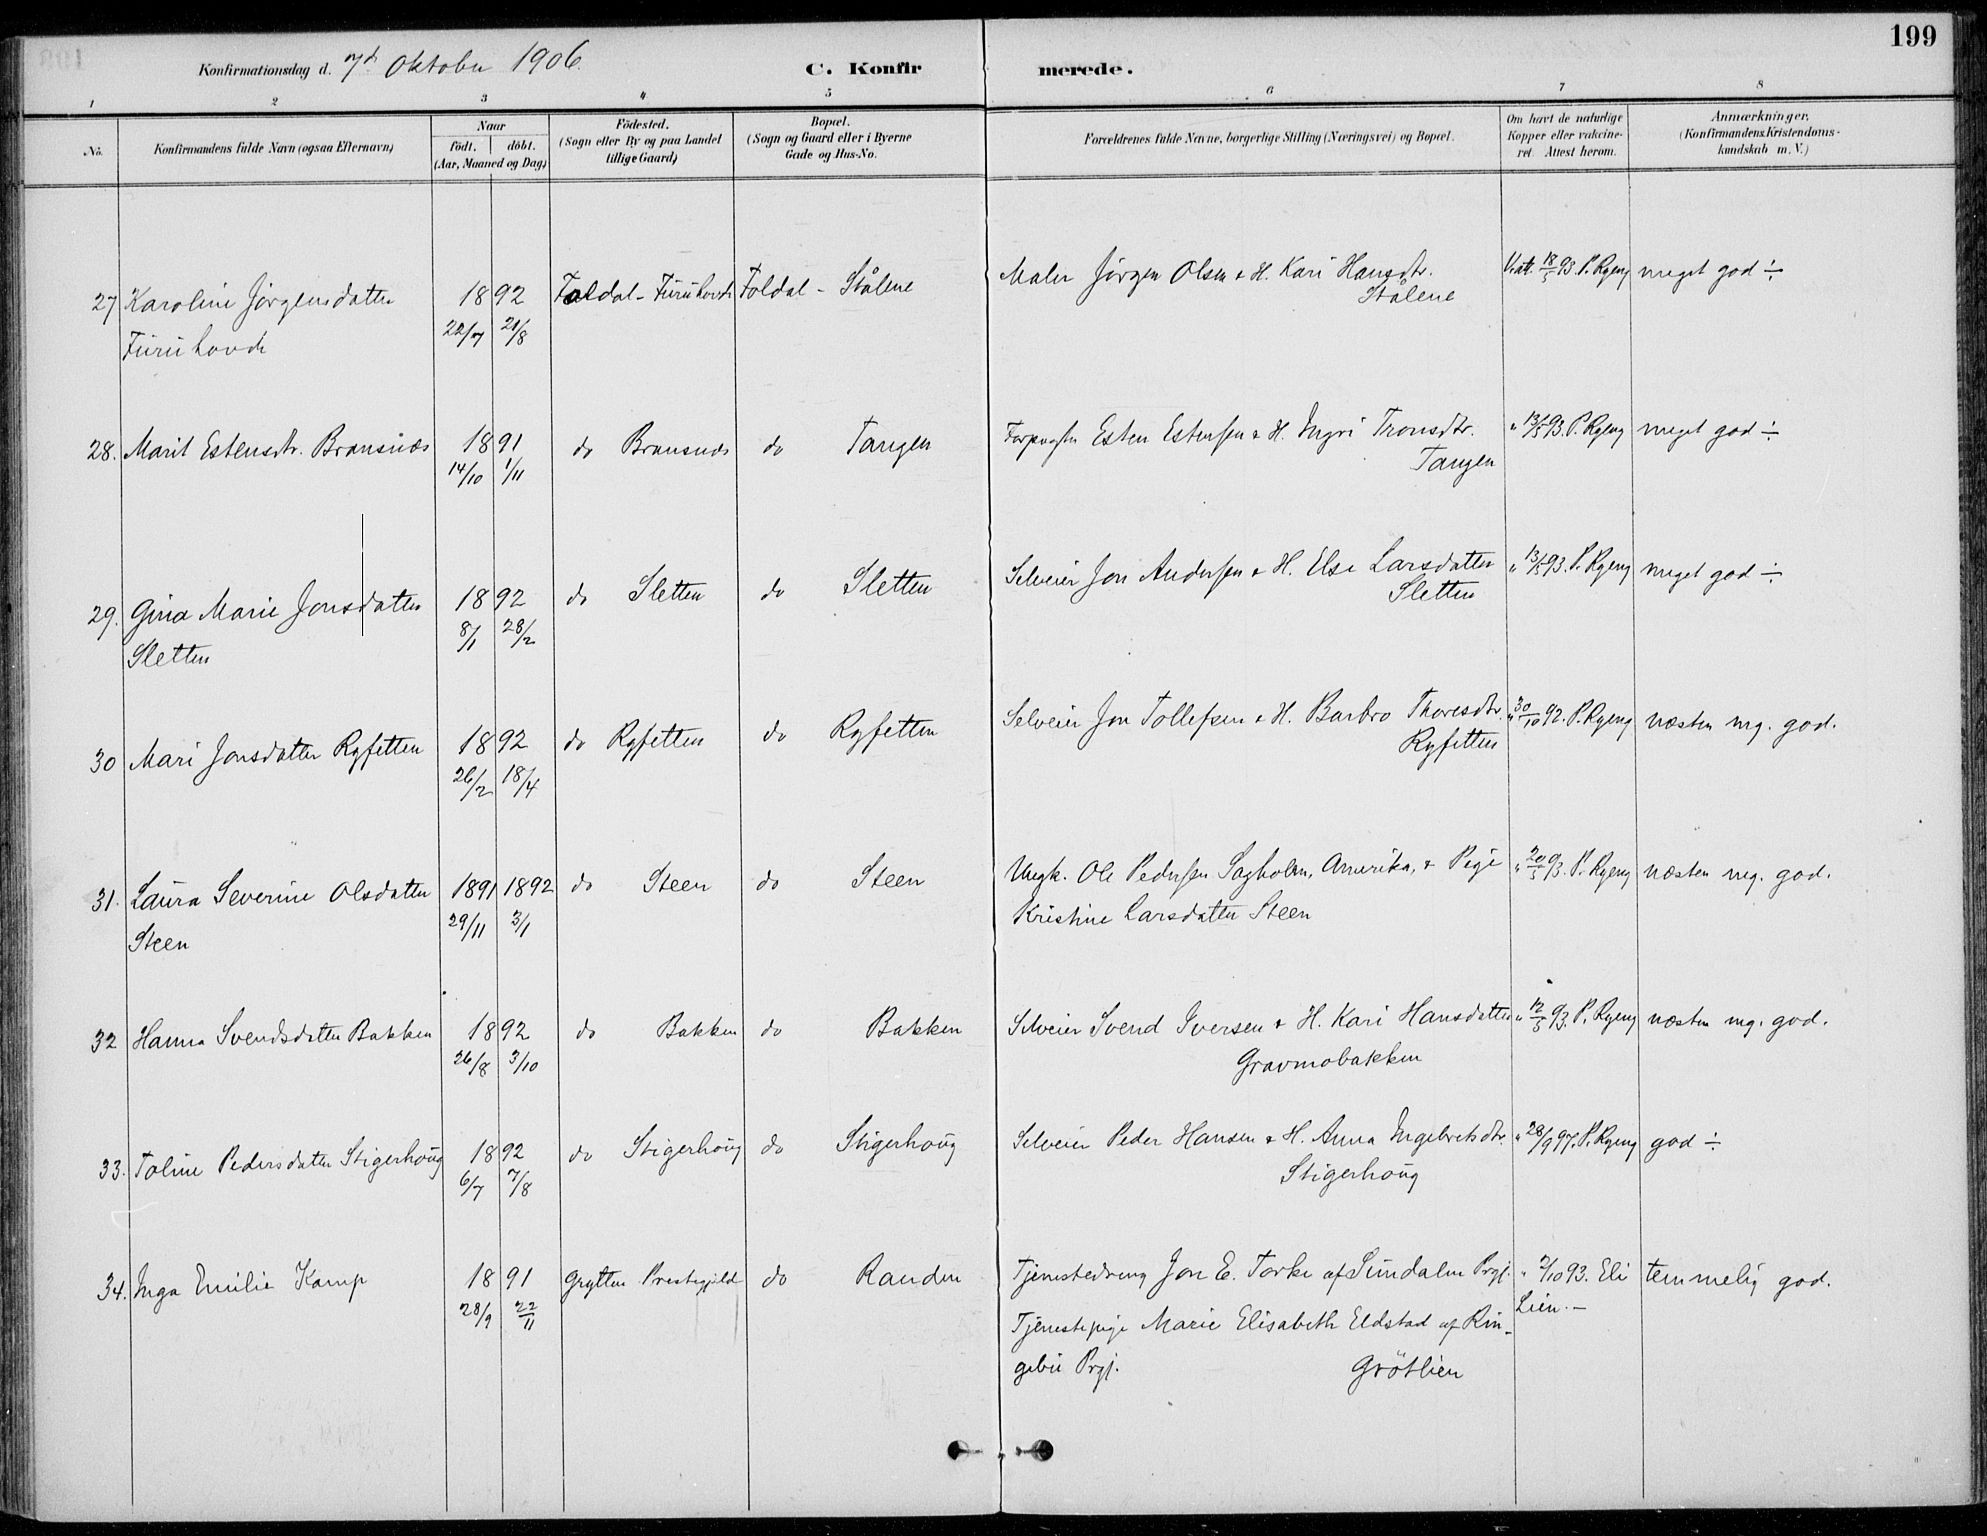 199
Konfirmationsdag d. 7de Oktober 1906.
C. Konfirmerede.
1 2 3 4 5 6 7 8
No.
Konfirmandens fulde Navn (ogsaa Efternavn)
Naar
födt. döbt.
(Aar, Maaned og Dag)
Födested.
(Sogn eller By og paa Landet
tillige Gaard)
Bopæl.
(Sogn og Gaard eller i Byerne
Gade og Hus-No.
Forældrenes fulde Navne, borgerlige Stilling (Næringsvei) og Bopæl.
Om havt de naturlige
Kopper eller vakcine-
ret. Attest herom.
Anmærkninger.
(Konfirmandens Kristendoms-
kundskab m. V.)
27 Karoline Jørgensdatter 1892 Foldal - Furuhovde Foldal - Stålene Maler Jörgen Olsen & H. Kari Hansdtr. Vatt. 18/5 93. P. Ryeng meget god ÷
Furuhovde 22/7 21/8 Stålene
28. Marit Estensdtr. Bransnæs 1891 do Bransnæs do Tangen Esten Estensen & H. Ingri Tronsdtr. " 13/5 93. P. Ryeng meget god ÷
14/10 1/11 Tangen
29. Gina Marie Jonsdatter 1892 do Sletten do Sletten Selveier Jon Andersen & H. Else Larsdatter " 13/5 93. P. Ryeng meget god ÷
Sletten 8/1 28/2 Sletten
30 Mari Jonsdatter Ryfetten 1892 do Ryfetten do Ryfetten Selveier Jon Tollefsen & H. Barbro Thoresdtr. " 30/10 92. P. Ryeng næsten mg. god.
26/2 18/4 Ryfetten
31. Laura Severine Olsdatter 1891 1892 do Steen do Steen Ungk. Ole Pedersen Sagholm, Amerika, & Pige " 20/5 93. P. Ryeng næsten mg. god.
Steen 29/11 3/1 Kristine Larsdatter Steen
32 Hanna Svendsdatter Bakken 1892 do Bakken do Bakken Selveier Svend Iversen & H. Kari Hansdatter " 12/5 93. P. Ryeng næsten mg. god.
26/8 3/10 Gravmobakken
33. Toline Pedersdatter Stigerhoug 1892 do Stigerhoug do Stigerhoug Selveier Peder Hansen & H. Anna Ingebretsdtr. " 28/9 97. P. Ryeng god ÷
6/7 7/8 Stigerhoug
34. Inga Emilie Kamp 1891 Grytten Prestegjeld do Randen Tjenestedreng Jon E. Torke af Sundalen Prgj. " 2/10 93. Eli temmelig god.
28/9 22/11 Lien. -
Tjenestepige Marie Elisabeth Eldstad af Rin-
gebu Prgj. Gröthlien